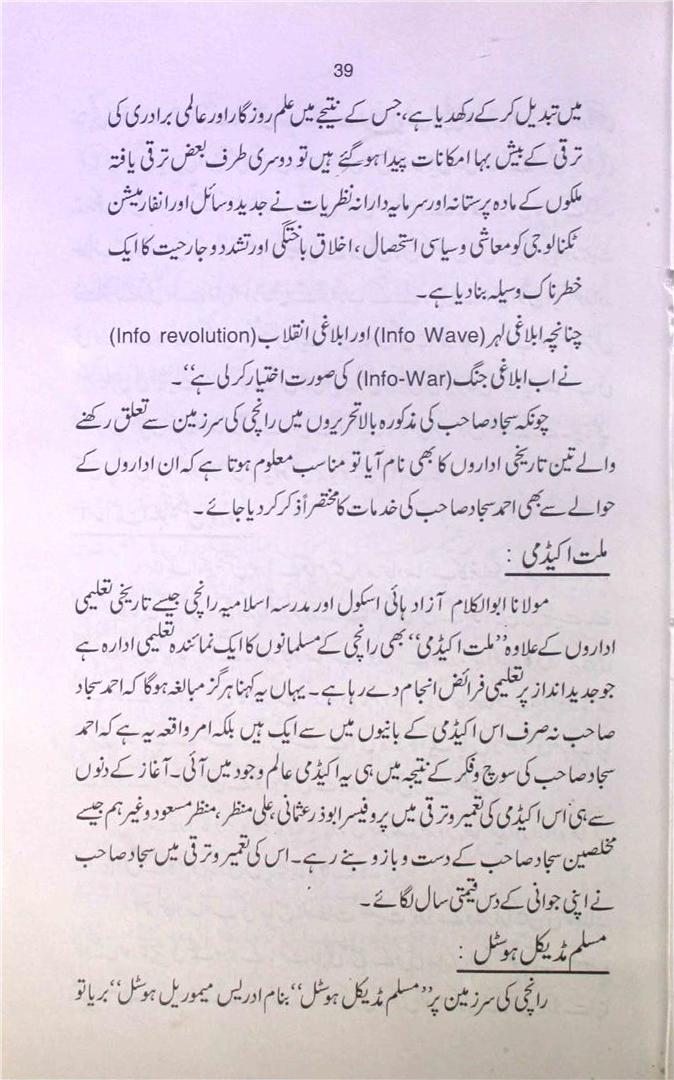 39
میں تبدیل کر کے رکھدیا ہے، جس کے نتیجے میں علم روزگار اور عالمی برادری کی
ترقی کے بیش بہا امکانات پیدا ہو گئے ہیں تو دوسری طرف بعض ترقی یافتہ
ملکوں کے مادہ پرستانہ اور سرمایہ دارانہ نظریات نے جدید وسائل اور انفارمیشن
ٹکنالوجی کو معاشی و سیاسی استحصال، اخلاق باختگی اور تشدد و جارحیت کا ایک
خطرناک وسیلہ بنا دیا ہے۔
چنانچہ ابلاغی لہر (Info Wave) اور ابلاغی انقلاب (Info revolution)
نے اب ابلاغی جنگ (Info-War) کی صورت اختیار کر لی ہے‘‘۔
چونکہ سجاد صاحب کی مذکورہ بالا تحریروں میں رانچی کی سرزمین سے تعلق رکھنے
والے تین تاریخی اداروں کا بھی نام آیا تو مناسب معلوم ہوتا ہے کہ ان اداروں کے
حوالے سے بھی احمد سجاد صاحب کی خدمات کا مختصراً ذکر کر دیا جائے۔
ملت اکیڈمی :
مولانا ابوالکلام آزاد ہائی اسکول اور مدرسہ اسلامیہ رانچی جیسے تاریخی تعلیمی
اداروں کے علاوہ ’’ملت اکیڈمی‘‘ بھی رانچی کے مسلمانوں کا ایک نمائندہ تعلیمی ادارہ ہے
جو جدید انداز پر تعلیمی فرائض انجام دے رہا ہے۔ یہاں یہ کہنا ہرگز مبالغہ ہوگا کہ احمد سجاد
صاحب نہ صرف اس اکیڈمی کے بانیوں میں سے ایک ہیں بلکہ امر واقعہ یہ ہے کہ احمد
سجاد صاحب کی سوچ و فکر کے نتیجہ میں ہی یہ اکیڈمی عالم وجود میں آئی۔ آغاز کے دنوں
سے ہی اس اکیڈمی کی تعمیر و ترقی میں پروفیسر ابوذر عثمانی، علی منظر، منظر مسعود وغیرہم جیسے
مخلصین سجاد صاحب کے دست و بازو بنے رہے۔ اس کی تعمیر و ترقی میں سجاد صاحب
نے اپنی جوانی کے دس قیمتی سال لگائے۔
مسلم مڈیکل ہوسٹل :
رانچی کی سرزمین پر ’’مسلم مڈیکل ہوسٹل‘‘ بنام ادریس میموریل ہوسٹل‘‘ بریاتو